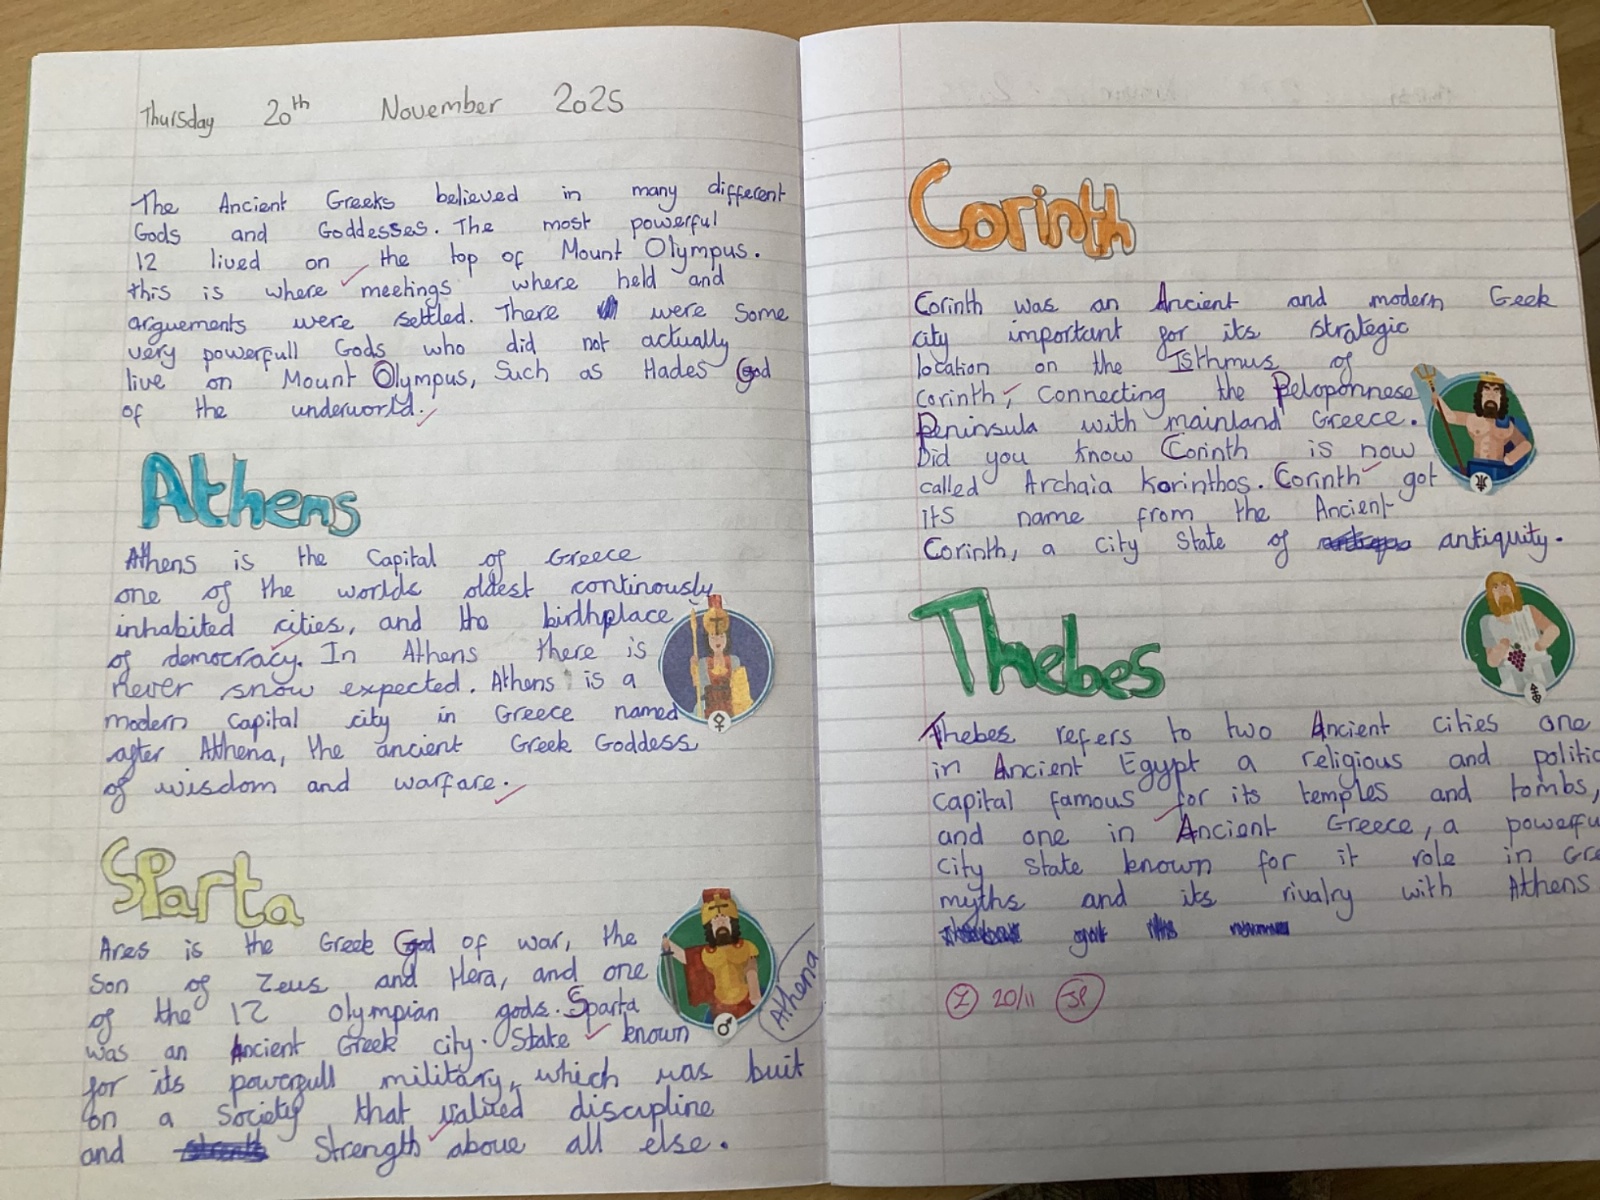 Thursday 20th November 2025
The Ancient Greeks believed in many different
Gods and Goddesses. The most powerful
12 lived on the top of Mount Olympus.
this is where meetings where held and
arguements were settled. There were Some
very powerfull Gods who did not actually
live on Mount Olympus, Such as Hades God
of the underworld.
Athens
Athens is the Capital of Greece
one of the worlds oldest continously
inhabited cities, and the birthplace
of democracy. In Athens there is
never snow expected. Athens is a
modern Capital city in Greece named
after Athena, the ancient Greek Goddess
of wisdom and warfare.
Sparta
Ares is the Greek God of war, the
Son of Zeus and Hera, and one
of the 12 Olympian gods. Sparta
was an Ancient Greek city. State known
for its powerfull military, which was buit
on a Society that valued discipline
and Strength above all else.
Athena
Corinth
Corinth was an Ancient and modern Geek
city important for its strategic
location on the Isthmus of
Corinth, Connecting the Peloponnese
Peninsula with mainland Greece.
Did you know Corinth is now
called Archaia Korinthos. Corinth got
its name from the Ancient
Corinth, a City State of antiquity.
Thebes
Thebes refers to two Ancient cities one
in Ancient Egypt a religious and politic
Capital famous for its temples and tombs,
and one in Ancient Greece, a powerfu
City State known for it role in Gre
myths and its rivalry with Athens
I 20/11 JP